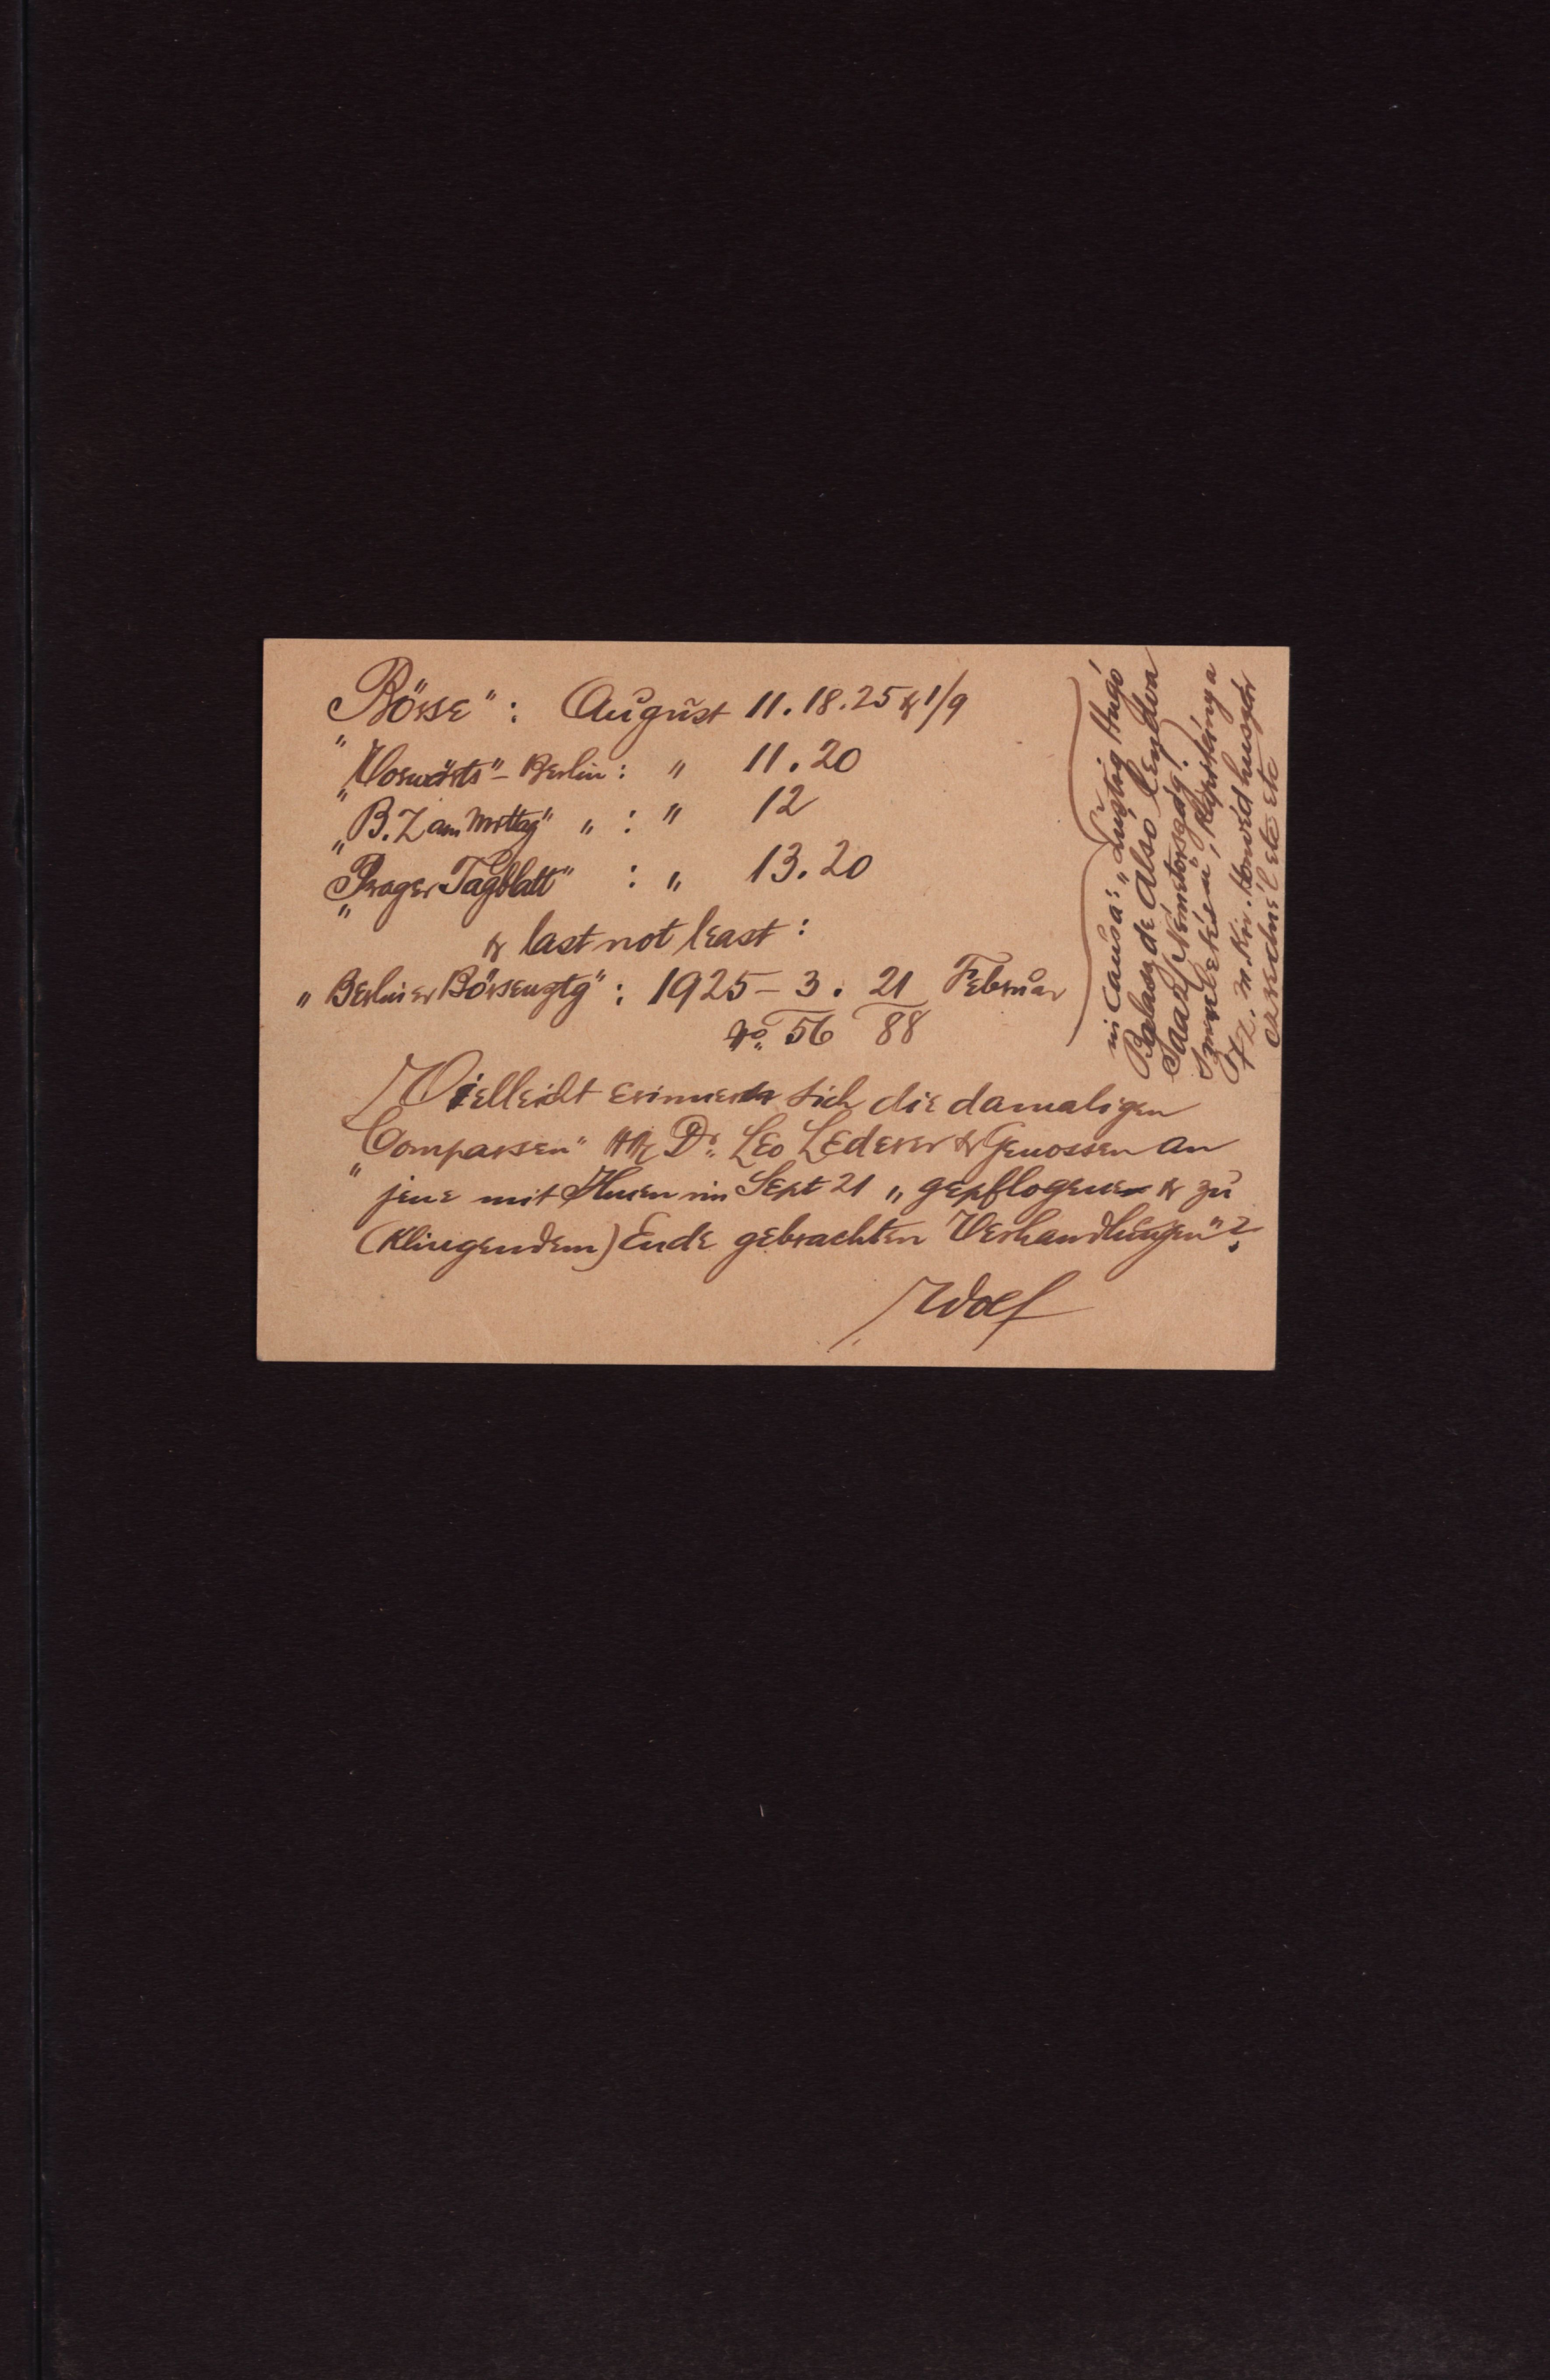 „Börse“: August 11. 18. 25 & 1/9
„Vorwärts“ - Berlin: " 11. 20
„B. Z am Mittag“ " : " 12
„Prager Tagblatt“ : " 13. 20
& last not least:
„Berliner Börsenztg“: 1925 – 3. 21 Februar
No. 56 88
Vielleicht erinnern sich die damaligen
„Comparsen“ HH Dr. Leo Lederer & Genossen an
jene mit Ihnen im Sept 21 „gepflogenen & zu
(klingendem) Ende gebrachten Verhandlungen“?
Wolf
in causa: „Lustig Hugó
de Alsó Lendva
Saaz Németország!
a
m. kir. Honvéd huszár
ezrednél etc etc